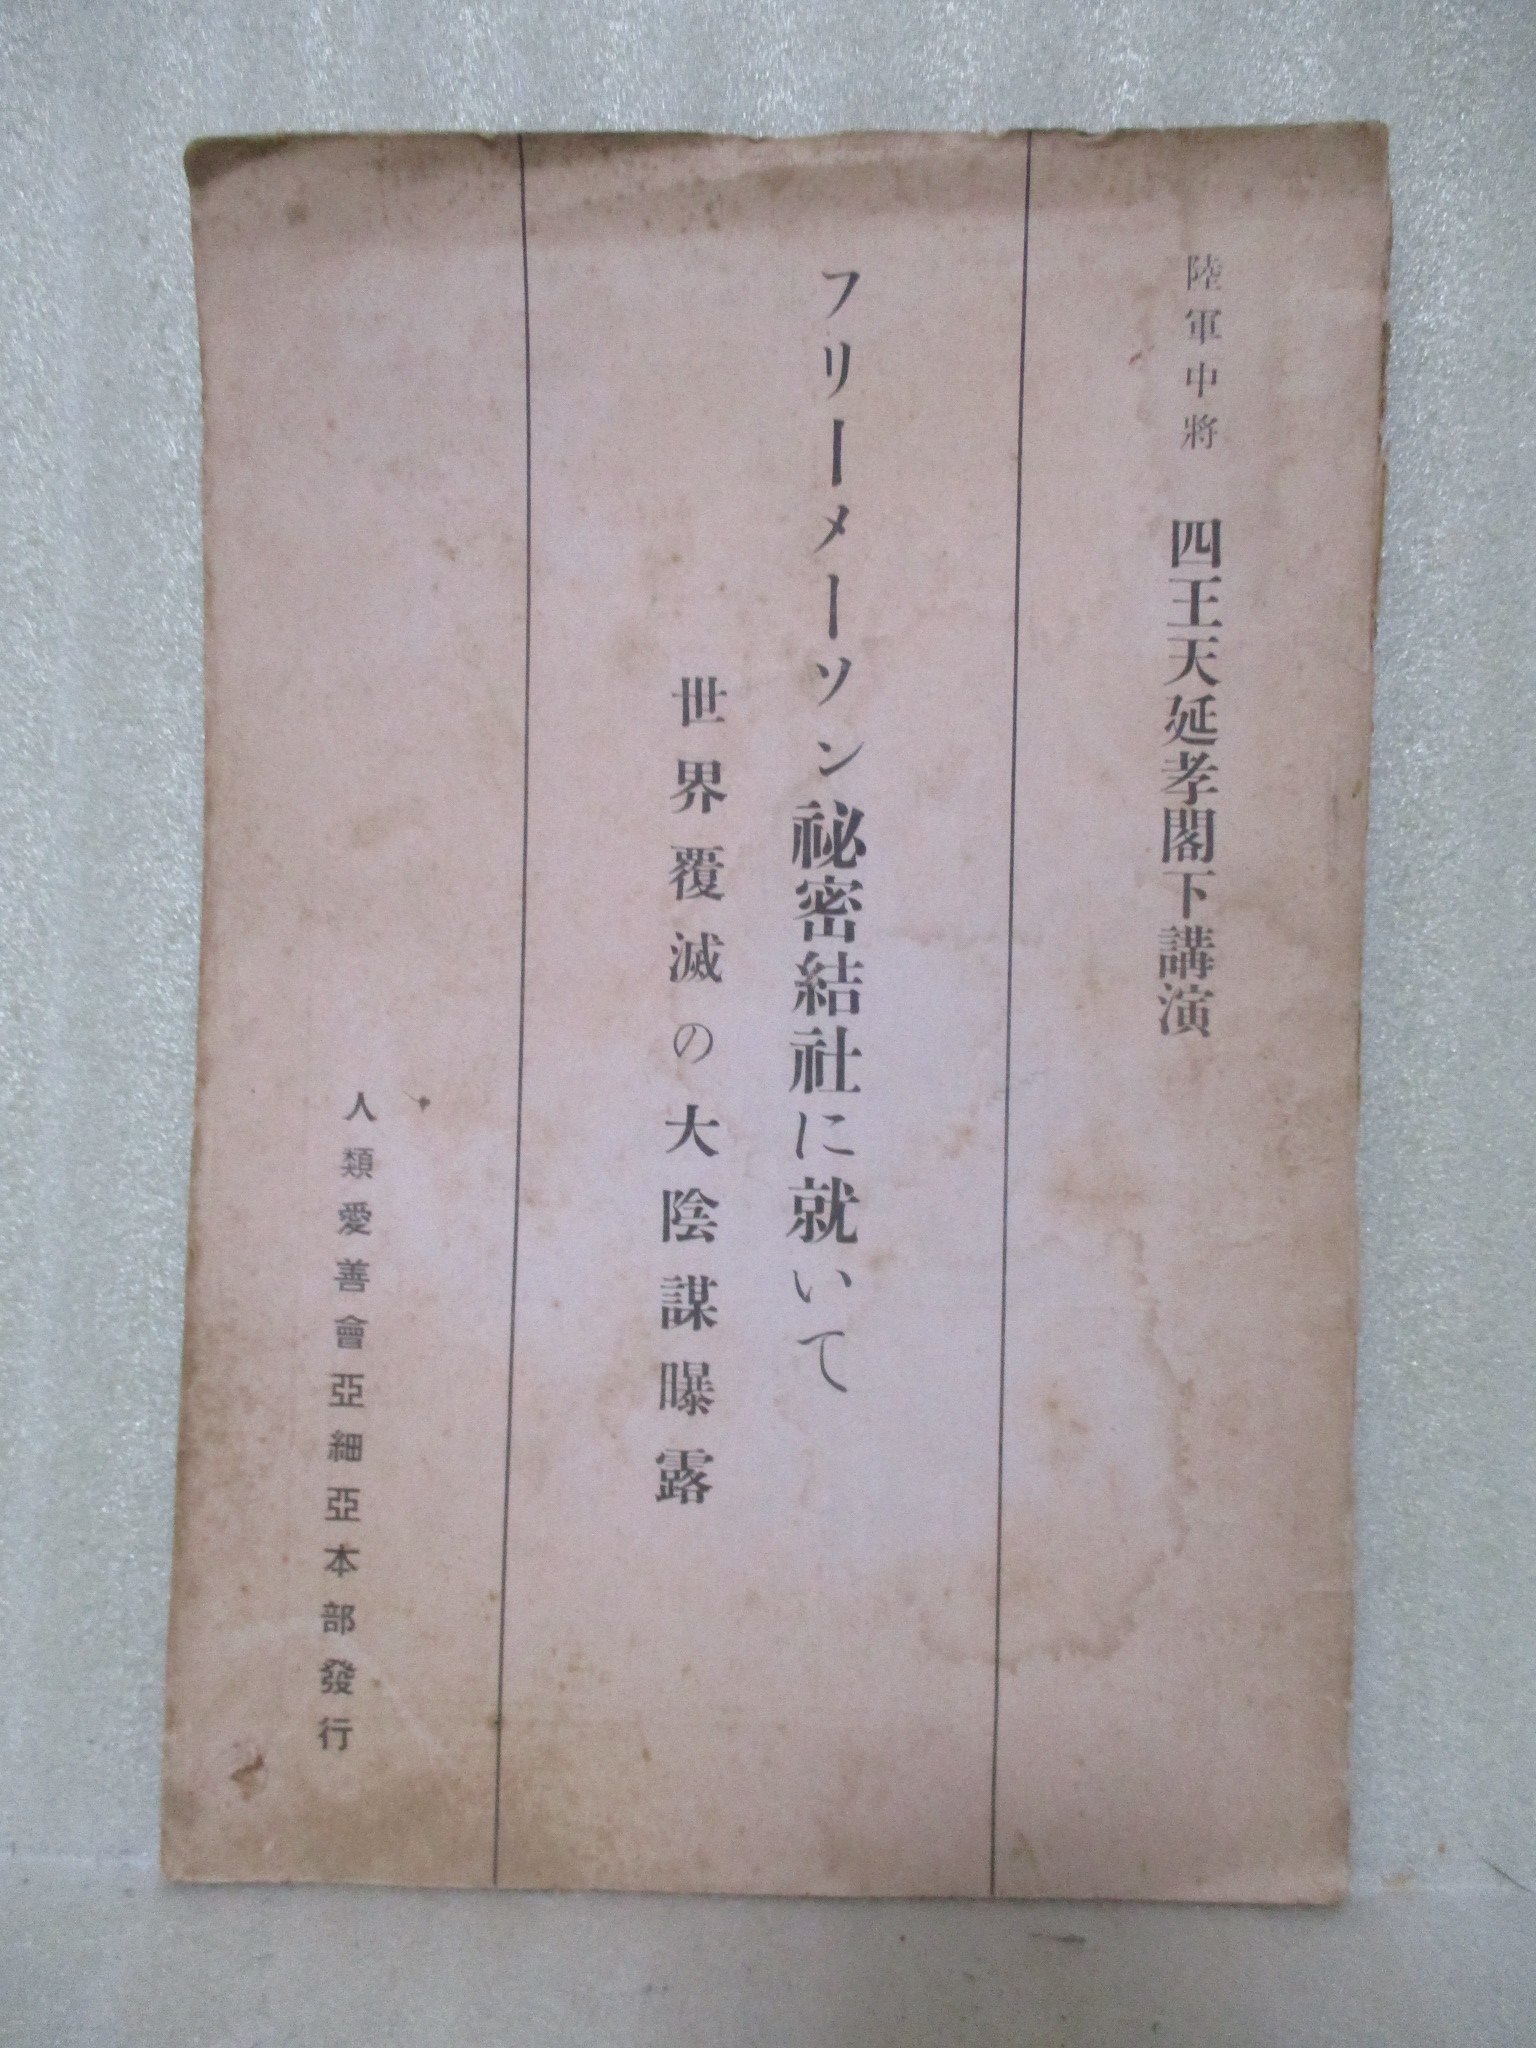 陸軍中將 四王天延孝閣下講演
フリーメーソン祕密結社に就いて
世界覆滅の大陰謀曝露
人類愛善會亞細亞本部發行